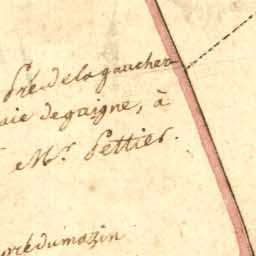 Pré de la gaucher
aie de gaigne, à
Mr. Pettier.
pré du mazin